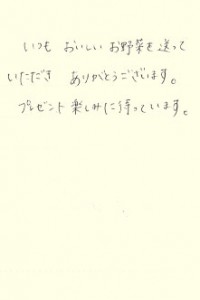 いつも おいしい お野菜を送って
いただき ありがとうございます。
プレゼント 楽しみに待っています。